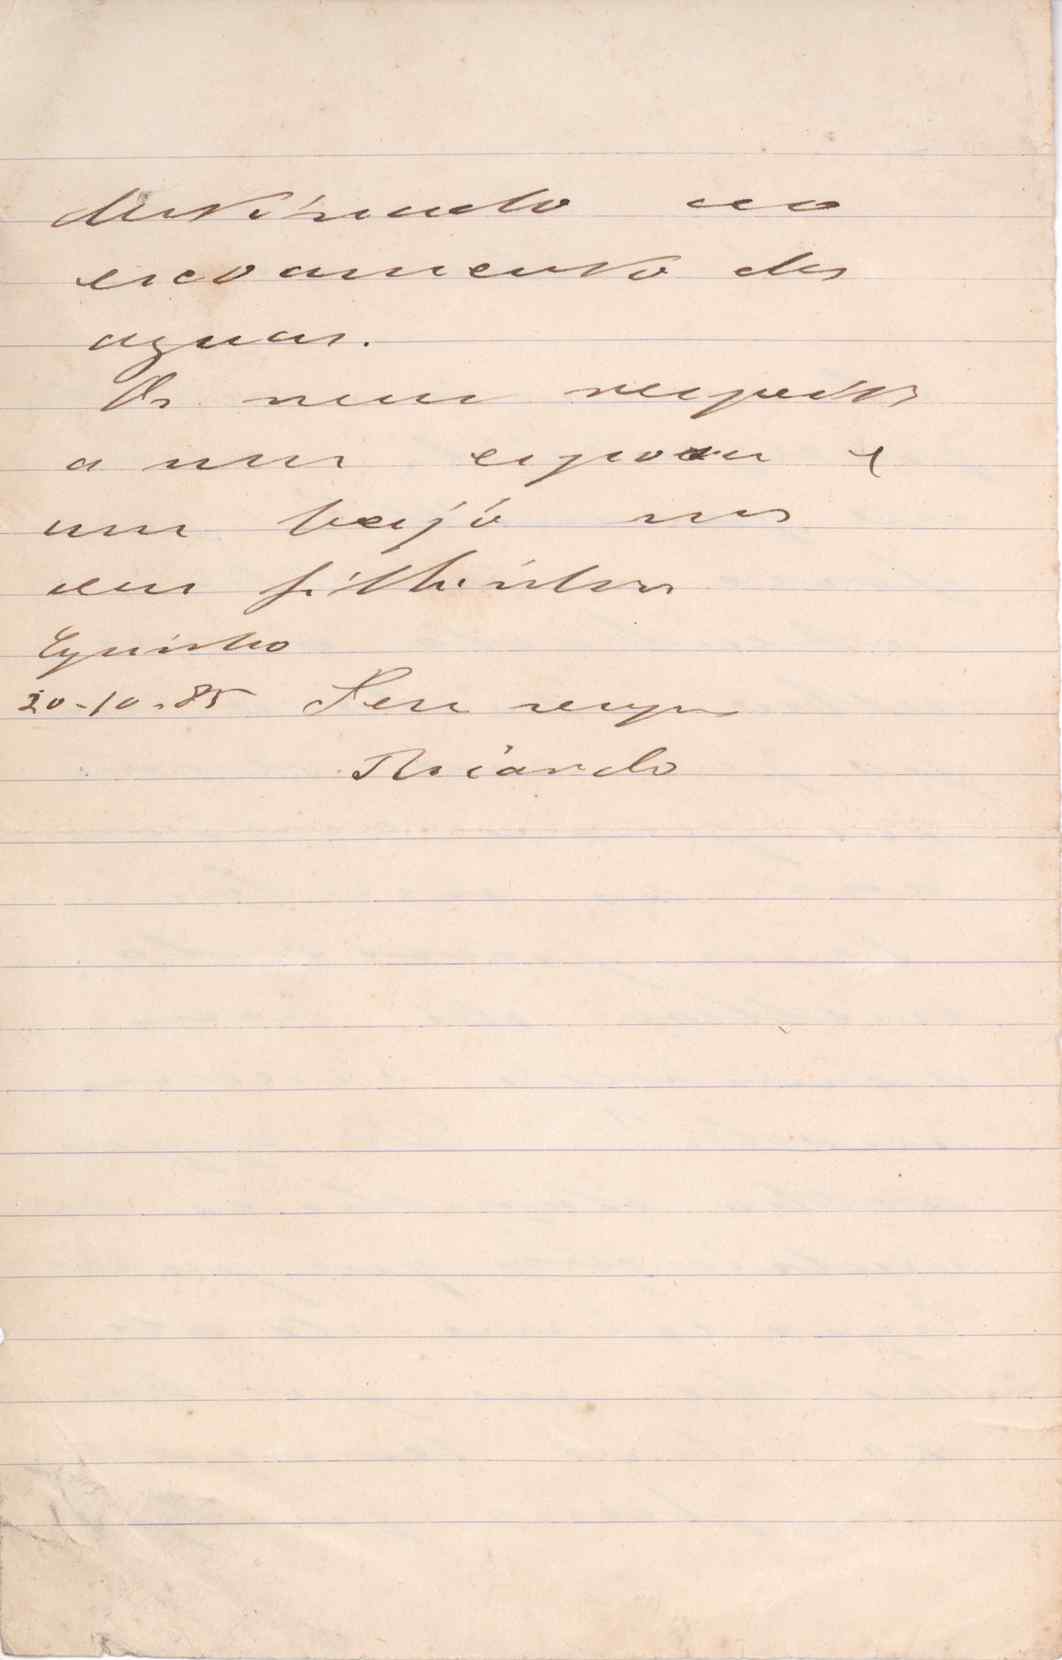 destinado ao
escoamento das
aguas.
Os meus respeitos
a sua esposa e
um beijo nos
seus filhinhos
Espinho
20-10-85 Seu
Ricardo